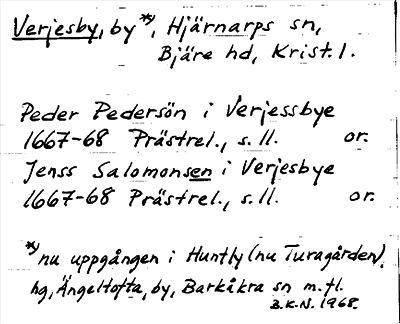 Verjesby, by *), Hjärnarps sn,
Bjäre hd, Krist. l.
Peder Pedersön i Verjessbye
1667-68 Prästrel., s. 11. or.
Jenss Salomonsen i Verjesbye
1667-68 Prästrel., s. 11. or.
*) nu uppgången i Huntly (nu Turagården),
hg, Ängeltofta, by, Barkåkra sn m. fl.
B.K.N. 1968.